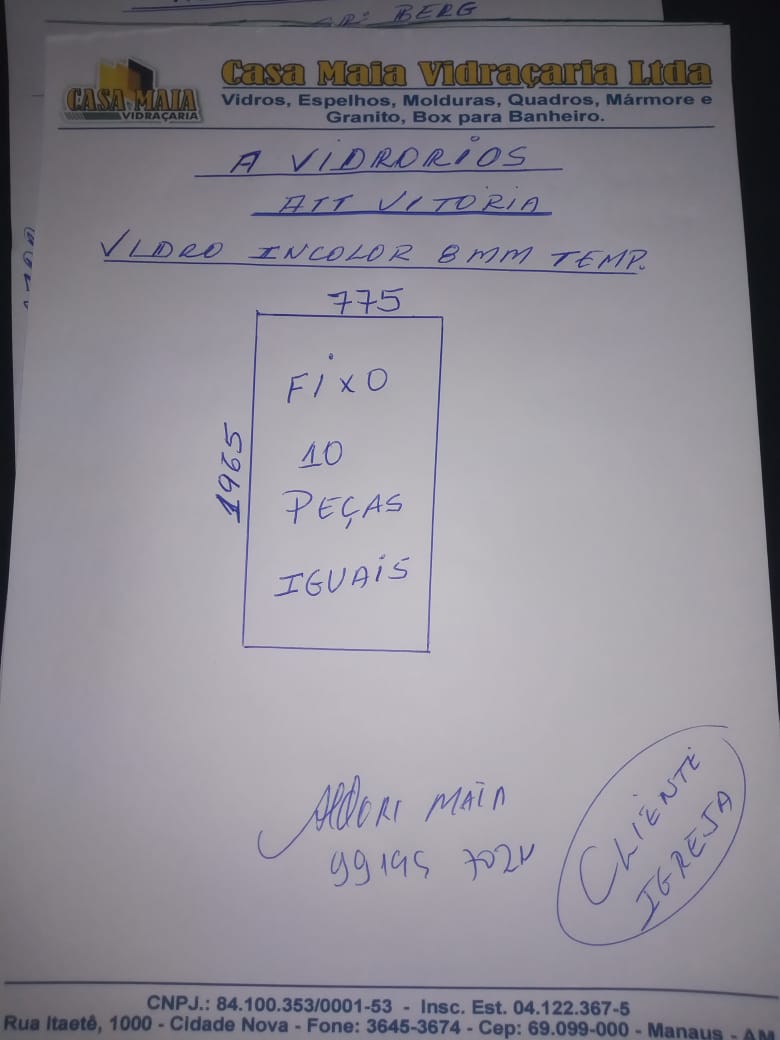 AR: BERG
CASA MAIA
VIDRAÇARIA
Casa Maia Vidraçaria Ltda
Vidros, Espelhos, Molduras, Quadros, Mármore e
Granito, Box para Banheiro.
A VIDRORIOS
ATT VITÓRIA
VIDRO INCOLOR 8MM TEMP.
775
1965
FIXO
10
PEÇAS
IGUAIS
MAIA
99195
CLIENTE
IGREJA
CNPJ.: 84.100.353/0001-53 - Insc. Est. 04.122.367-5
Rua Itaetê, 1000 - Cidade Nova - Fone: 3645-3674 - Cep: 69.099-000 - Manaus - AM